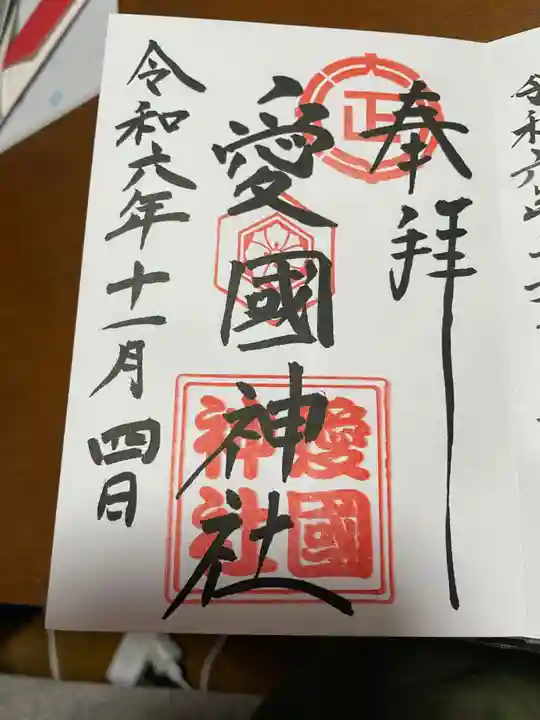 奉拝
大正
愛國神社
愛國神社
令和六年十一月四日